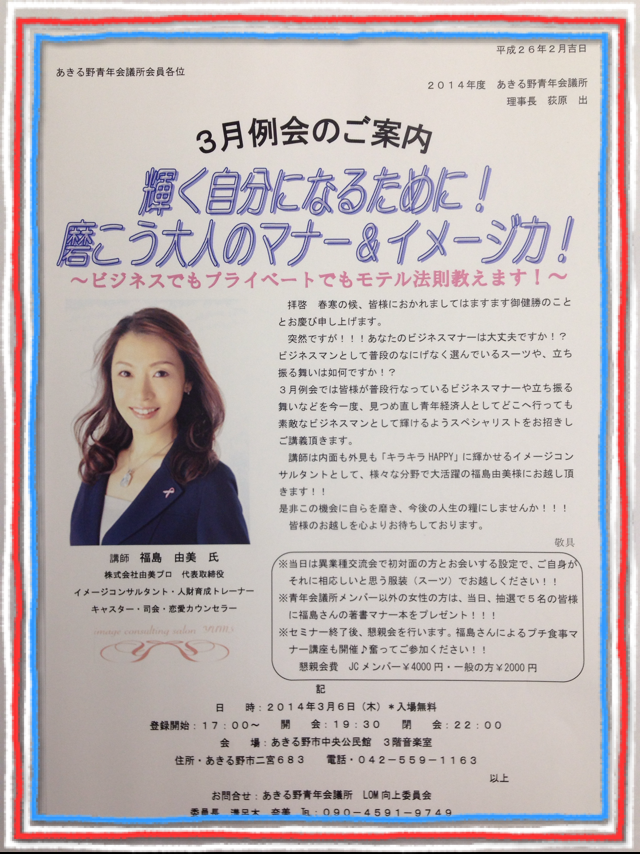 平成２６年２月吉日
あきる野青年会議所会員各位
２０１４年度　あきる野青年会議所
理事長　荻原　出
３月例会のご案内
輝く自分になるために！
磨こう大人のマナー＆イメージ力！
～ビジネスでもプライベートでもモテル法則教えます！～
拝啓　春寒の候、皆様におかれましてはますます御健勝のこと
とお慶び申し上げます。
突然ですが！！！あなたのビジネスマナーは大丈夫ですか！？
ビジネスマンとして普段のなにげなく選んでいるスーツや、立ち
振る舞いは如何ですか！？
３月例会では皆様が普段行なっているビジネスマナーや立ち振る
舞いなどを今一度、見つめ直し青年経済人としてどこへ行っても
素敵なビジネスマンとして輝けるようスペシャリストをお招きし
ご講義頂きます。
講師は内面も外見も「キラキラHAPPY」に輝かせるイメージコン
サルタントとして、様々な分野で大活躍の福島由美様にお越し頂
きます！！
是非この機会に自らを磨き、今後の人生の糧にしませんか！！！
皆様のお越しを心よりお待ちしております。
敬具
講師　福島　由美　氏
株式会社由美プロ　代表取締役
イメージコンサルタント・人財育成トレーナー
キャスター・司会・恋愛カウンセラー
image consulting salon YUMI
※当日は異業種交流会で初対面の方とお会いする設定で、ご自身が
それに相応しいと思う服装（スーツ）でお越しください！！
※青年会議所メンバー以外の女性の方は、当日、抽選で５名の皆様
に福島さんの著書マナー本をプレゼント！！！
※セミナー終了後、懇親会を行います。福島さんによるプチ食事マ
ナー講座も開催♪奮ってご参加ください！！
懇親会費　JCメンバー￥4000円・一般の方￥2000円
記
日　　時：２０１４年３月６日（木）＊入場無料
登録開始：１７：００～　開　会：１９：３０　閉　会：２２：００
会　　場：あきる野市中央公民館　３階音楽室
住所・あきる野市二宮６８３　電話・０４２－５５９－１１６３
以上
お問合せ：あきる野青年会議所　LOM向上委員会
委員長　溝呂木　奈美　℡：０９０－４５９１－９７４９